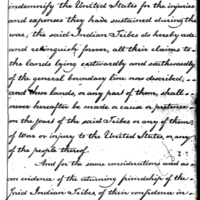 indemnify the United States for the injuries
and expenses they have sustained during the
war, the said Indian Tribes do hereby cede
and relinquish forever, all their claims to
the lands lying eastwardly and southwardly
of the general boundary line now described;
and these lands, or any part of them, shall
never hereafter be made a cause or pretence
on the part of the said Tribes or any of them
of War or injury to the United States, or any
of the people thereof.
And for the same considerations and as
an evidence of the returning friendship of the
said Indian Tribes of their confidence in